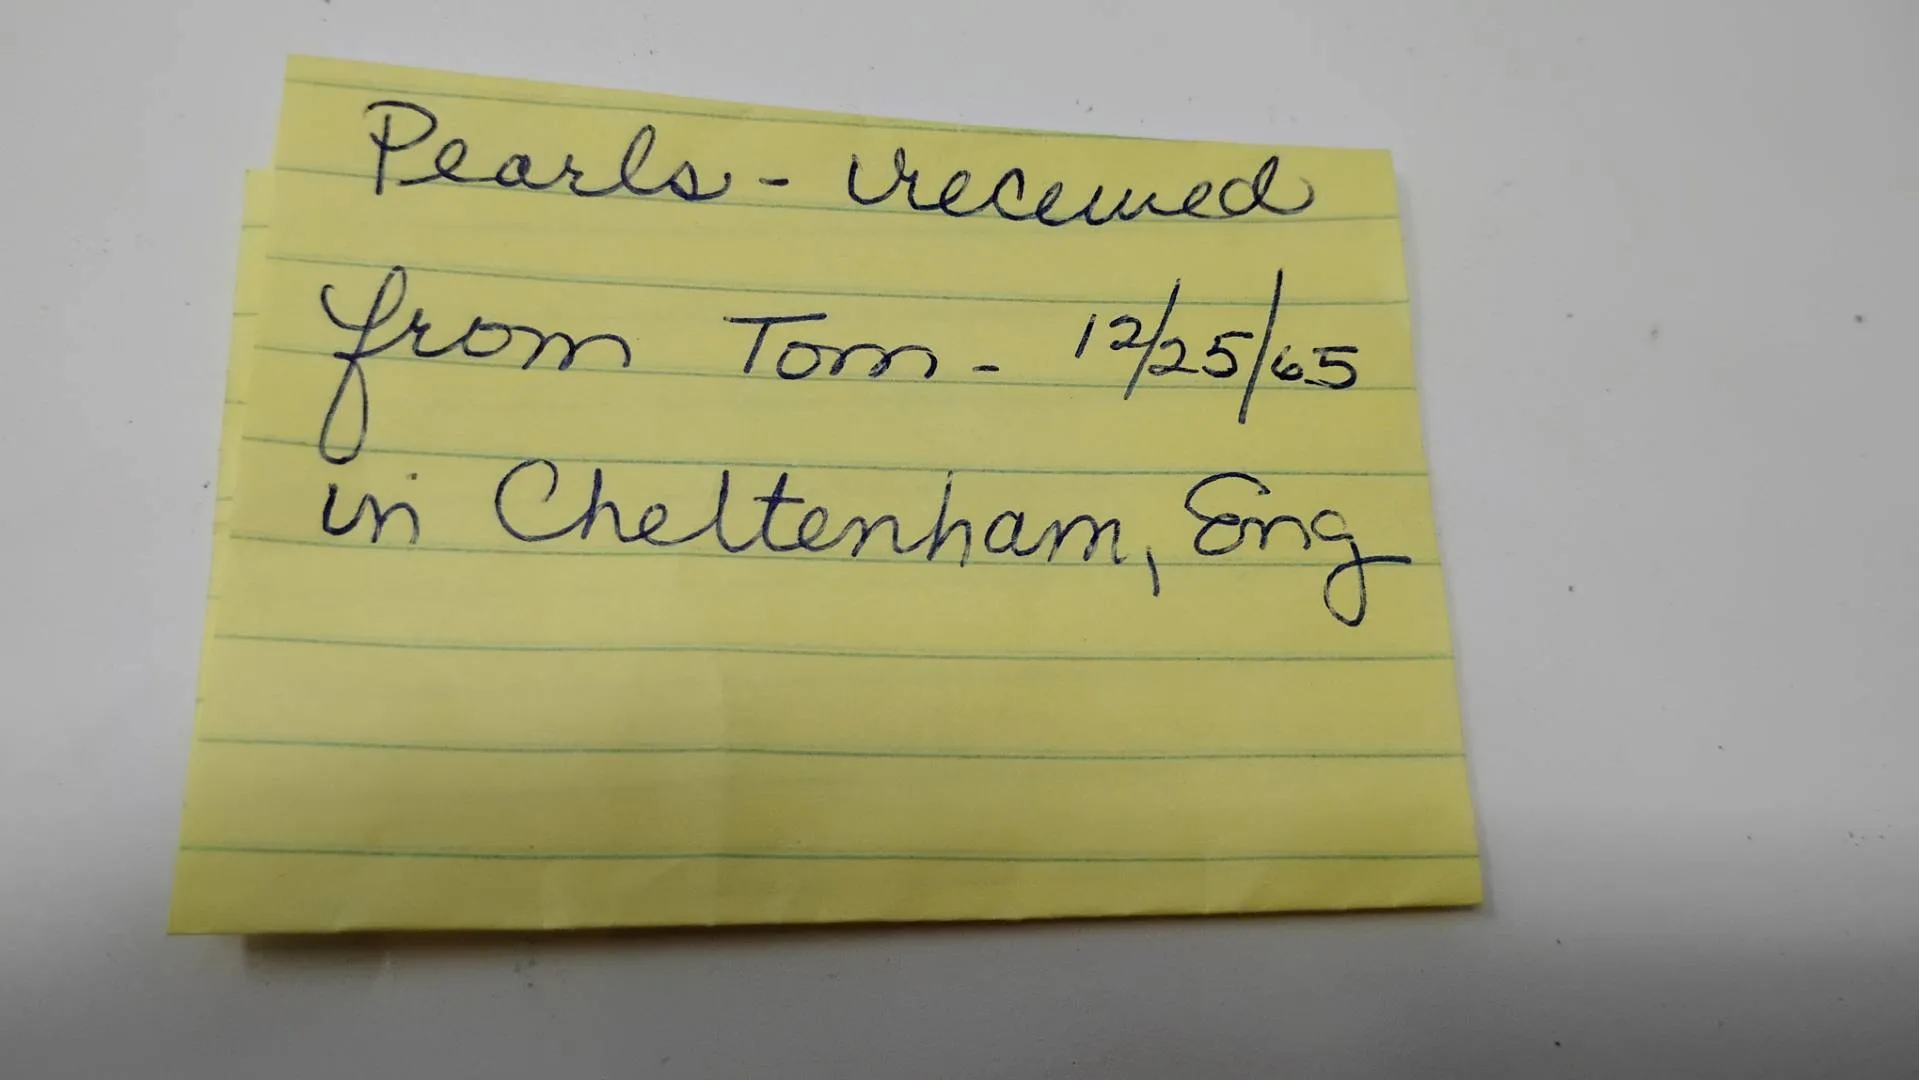 Pearls - received
from Tom - 12/25/65
in Cheltenham, Eng